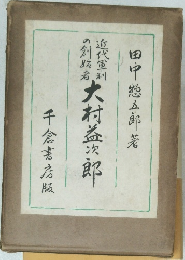 田中惣五郎 著
近代軍制
の創始者
大村益次郎
千倉書房版